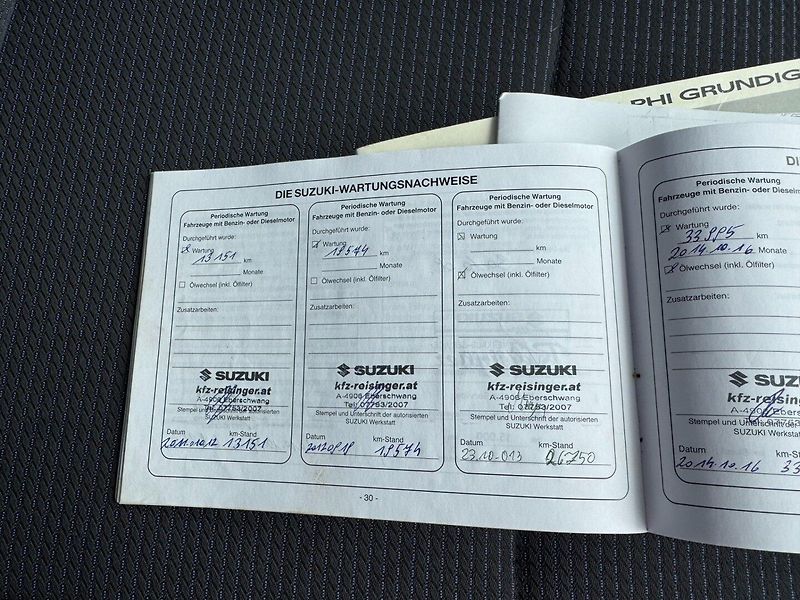 PHI GRUNDIG
DIE SUZUKI-WARTUNGSNACHWEISE
Periodische Wartung
Fahrzeuge mit Benzin- oder Dieselmotor
Durchgeführt wurde:
Wartung
13151 km
Monate
Ölwechsel (inkl. Ölfilter)
Zusatzarbeiten:
SUZUKI
kfz-reisinger.at
A-4906 Eberschwang
Tel. 07753/2007
Stempel und Unterschrift der autorisierten
SUZUKI Werkstatt
Datum km-Stand
2011.10.12 13151
Periodische Wartung
Fahrzeuge mit Benzin- oder Dieselmotor
Durchgeführt wurde:
Wartung
19574 km
Monate
Ölwechsel (inkl. Ölfilter)
Zusatzarbeiten:
SUZUKI
kfz-reisinger.at
A-4906 Eberschwang
Tel. 07753/2007
Stempel und Unterschrift der autorisierten
SUZUKI Werkstatt
Datum km-Stand
19574
Periodische Wartung
Fahrzeuge mit Benzin- oder Dieselmotor
Durchgeführt wurde:
Wartung
km
Monate
Ölwechsel (inkl. Ölfilter)
Zusatzarbeiten:
SUZUKI
kfz-reisinger.at
A-4906 Eberschwang
Tel. 07753/2007
Stempel und Unterschrift der autorisierten
SUZUKI Werkstatt
Datum km-Stand
23.10.013 26750
- 30 -
DI
Periodische Wartung
Fahrzeuge mit Benzin- oder Dieselmotor
Durchgeführt wurde:
Wartung
km
2014.10.16 Monate
Ölwechsel (inkl. Ölfilter)
Zusatzarbeiten:
SUZU
kfz-reisinger.at
A-4906 Eberschwang
Stempel und Unterschrift der autorisierten
SUZUKI Werkstatt
Datum km-Sta
2014.10.16 33